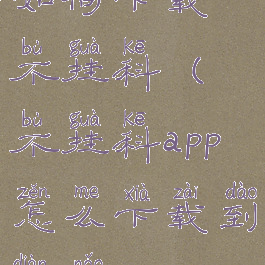 如何下载
bú guà kē
不挂科（
bú guà kē
不挂科app
zěn me xià zài dào
怎么下载到
diàn nǎo